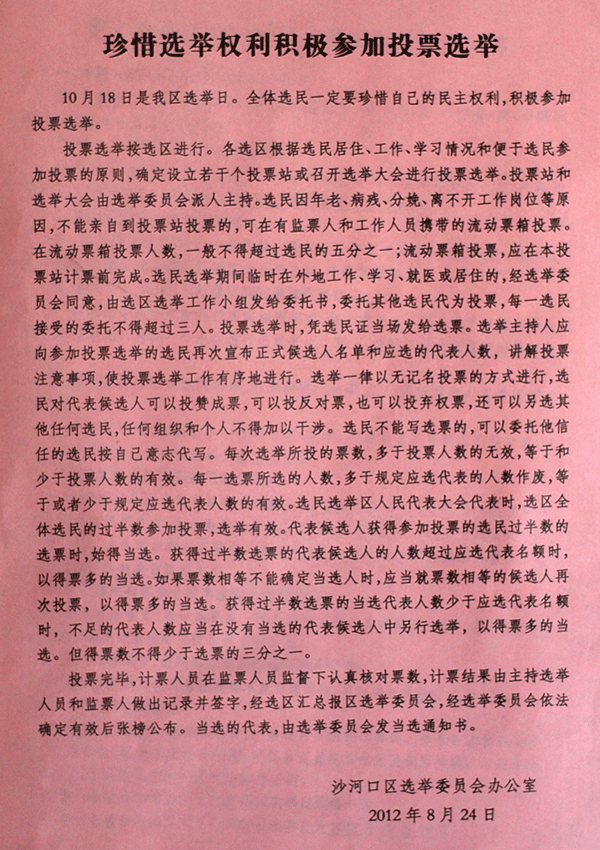 珍惜选举权利积极参加投票选举
10月18日是我区选举日。全体选民一定要珍惜自己的民主权利,积极参加
投票选举。
投票选举按选区进行。各选区根据选民居住、工作、学习情况和便于选民参
加投票的原则,确定设立若干个投票站或召开选举大会进行投票选举。投票站和
选举大会由选举委员会派人主持。选民因年老、病残、分娩、离不开工作岗位等原
因,不能亲自到投票站投票的,可在有监票人和工作人员携带的流动票箱投票。
在流动票箱投票人数,一般不得超过选民的五分之一;流动票箱投票,应在本投
票站计票前完成。选民选举期间临时在外地工作、学习、就医或居住的,经选举委
员会同意,由选区选举工作小组发给委托书,委托其他选民代为投票,每一选民
接受的委托不得超过三人。投票选举时,凭选民证当场发给选票。选举主持人应
向参加投票选举的选民再次宣布正式候选人名单和应选的代表人数,讲解投票
注意事项,使投票选举工作有序地进行。选举一律以无记名投票的方式进行,选
民对代表候选人可以投赞成票,可以投反对票,也可以投弃权票,还可以另选其
他任何选民,任何组织和个人不得加以干涉。选民不能写选票的,可以委托他信
任的选民按自己意志代写。每次选举所投的票数,多于投票人数的无效,等于和
少于投票人数的有效。每一选票所选的人数,多于规定应选代表的人数作废,等
于或者少于规定应选代表人数的有效。选民选举区人民代表大会代表时,选区全
体选民的过半数参加投票,选举有效。代表候选人获得参加投票的选民过半数的
选票时,始得当选。获得过半数选票的代表候选人的人数超过应选代表名额时,
以得票多的当选。如果票数相等不能确定当选人时,应当就票数相等的候选人再
次投票,以得票多的当选。获得过半数选票的当选代表人数少于应选代表名额
时,不足的代表人数应当在没有当选的代表候选人中另行选举,以得票多的当
选。但得票数不得少于选票的三分之一。
投票完毕,计票人员在监票人员监督下认真核对票数,计票结果由主持选举
人员和监票人做出记录并签字,经选区汇总报区选举委员会,经选举委员会依法
确定有效后张榜公布。当选的代表,由选举委员会发当选通知书。
沙河口区选举委员会办公室
2012年8月24日